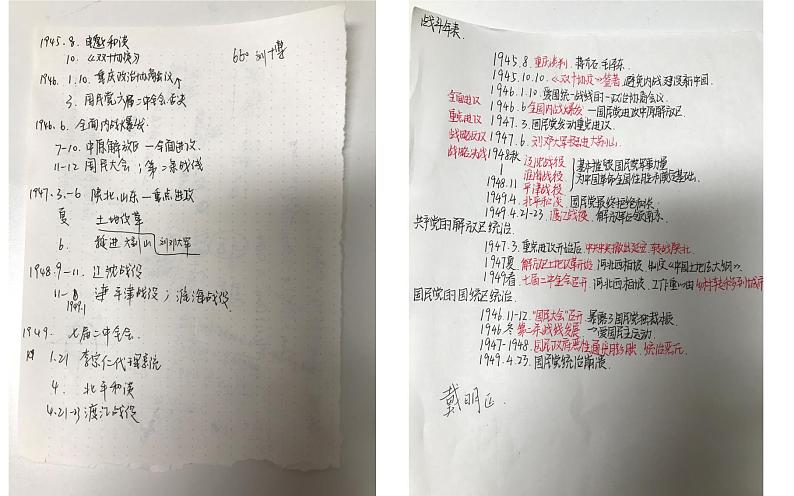 1945.8. 重慶和谈
10. 《双十协定》
660 刘博
1946. 1.10. 重庆政治协商会议
3. 国民党六届二中全会决
1946.6. 全面内战爆发.
7-10. 中原解放区—全面进攻.
11-12 国民大会;第二条战线
1947.3.-6 陕北,山东—重点进攻
夏 土地改革
6. 挺进大别山 刘邓大军
1948.9-11. 辽沈战役
11- 1949.1 平津战役;淮海战役
1949. 七届二中全会.
1.21 李宗仁代理总统
4. 北平和谈
4.21-23 渡江战役
战斗年表.
1945.8. 重庆谈判. 蒋介石 毛泽东.
1945.10.10.《双十协定》签署,避免内战,建设新中国.
1946.1.10. 爱国统一战线的—政治协商会议.
全面进攻 1946.6 全面内战爆发—国民党进攻中原解放区.
重点进攻 1947.3. 国民党发动重点进攻.
战略反攻 1947.6. 刘邓大军挺进大别山.
战略决战 1948秋 辽沈战役
淮海战役 基本摧毁国民党军事力量
1948.11 平津战役 为中国革命全国性胜利奠定基础.
1949.4. 北平和谈. 国民党最终拒绝和谈.
1949.4.21-23. 渡江战役. 解放军占领南京.
共产党的解放区统治.
1947.3. 重点进攻开始后,中共中央撤出延安,转战陕北.
1947夏. 解放区土地改革开始 河北西柏坡.制定《中国土地法大纲》.
1949春. 七届二中全会召开. 河北西柏坡.工作重心由乡村转移到城市
国民党的国统区统治.
1946.11-12. "国民大会"召开. 暴露了国民党独裁相.
1946冬 第二条战线发展 →爱国民主运动.
1947-1948. 国民政府恶性通货膨胀.
1949.4.23. 国民党统治崩溃.
戴明